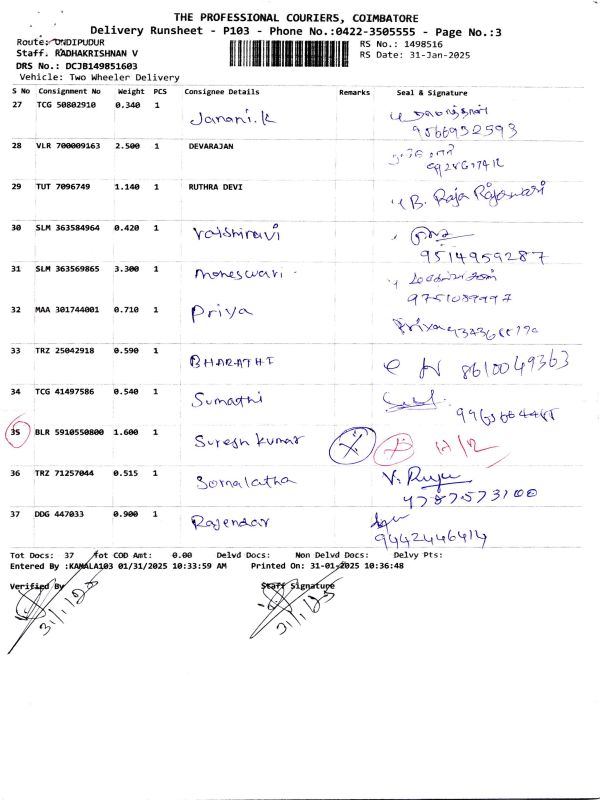 THE PROFESSIONAL COURIERS, COIMBATORE
Delivery Runsheet - P103 - Phone No.:0422-3505555 - Page No.:3
Route: ONDIPUDUR
RS No.: 1498516
Staff. RADHAKRISHNAN V
RS Date: 31-Jan-2025
DRS No.: DCJB149851603
Vehicle: Two Wheeler Delivery
S No Consignment No Weight PCS Consignee Details Remarks Seal & Signature
27 TCG 50802910 0.340 1 Janani.K
9566952593
28 VLR 700009163 2.500 1 DEVARAJAN
29 TUT 7096749 1.140 1 RUTHRA DEVI B. Raja Rajeswari
30 SLM 363584964 0.420 1 Vaishnavi
9514959287
31 SLM 363569865 3.300 1 Maheswari
32 MAA 301744001 0.710 1 Priya Priya
33 TRZ 25042918 0.590 1 BHARATHI 8610049363
34 TCG 41497586 0.540 1 Sumathi
35 BLR 5910550800 1.600 1 Suresh kumar
36 TRZ 71257044 0.515 1 Sornalatha
9787573100
37 DDG 447033 0.900 1 Rajendar
9442446414
Tot Docs: 37 Tot COD Amt: 0.00 Delvd Docs: Non Delvd Docs: Delvy Pts:
Entered By :KAMALA103 01/31/2025 10:33:59 AM Printed On: 31-01-2025 10:36:48
Verified By Staff Signature
31/1/25 31/1/25